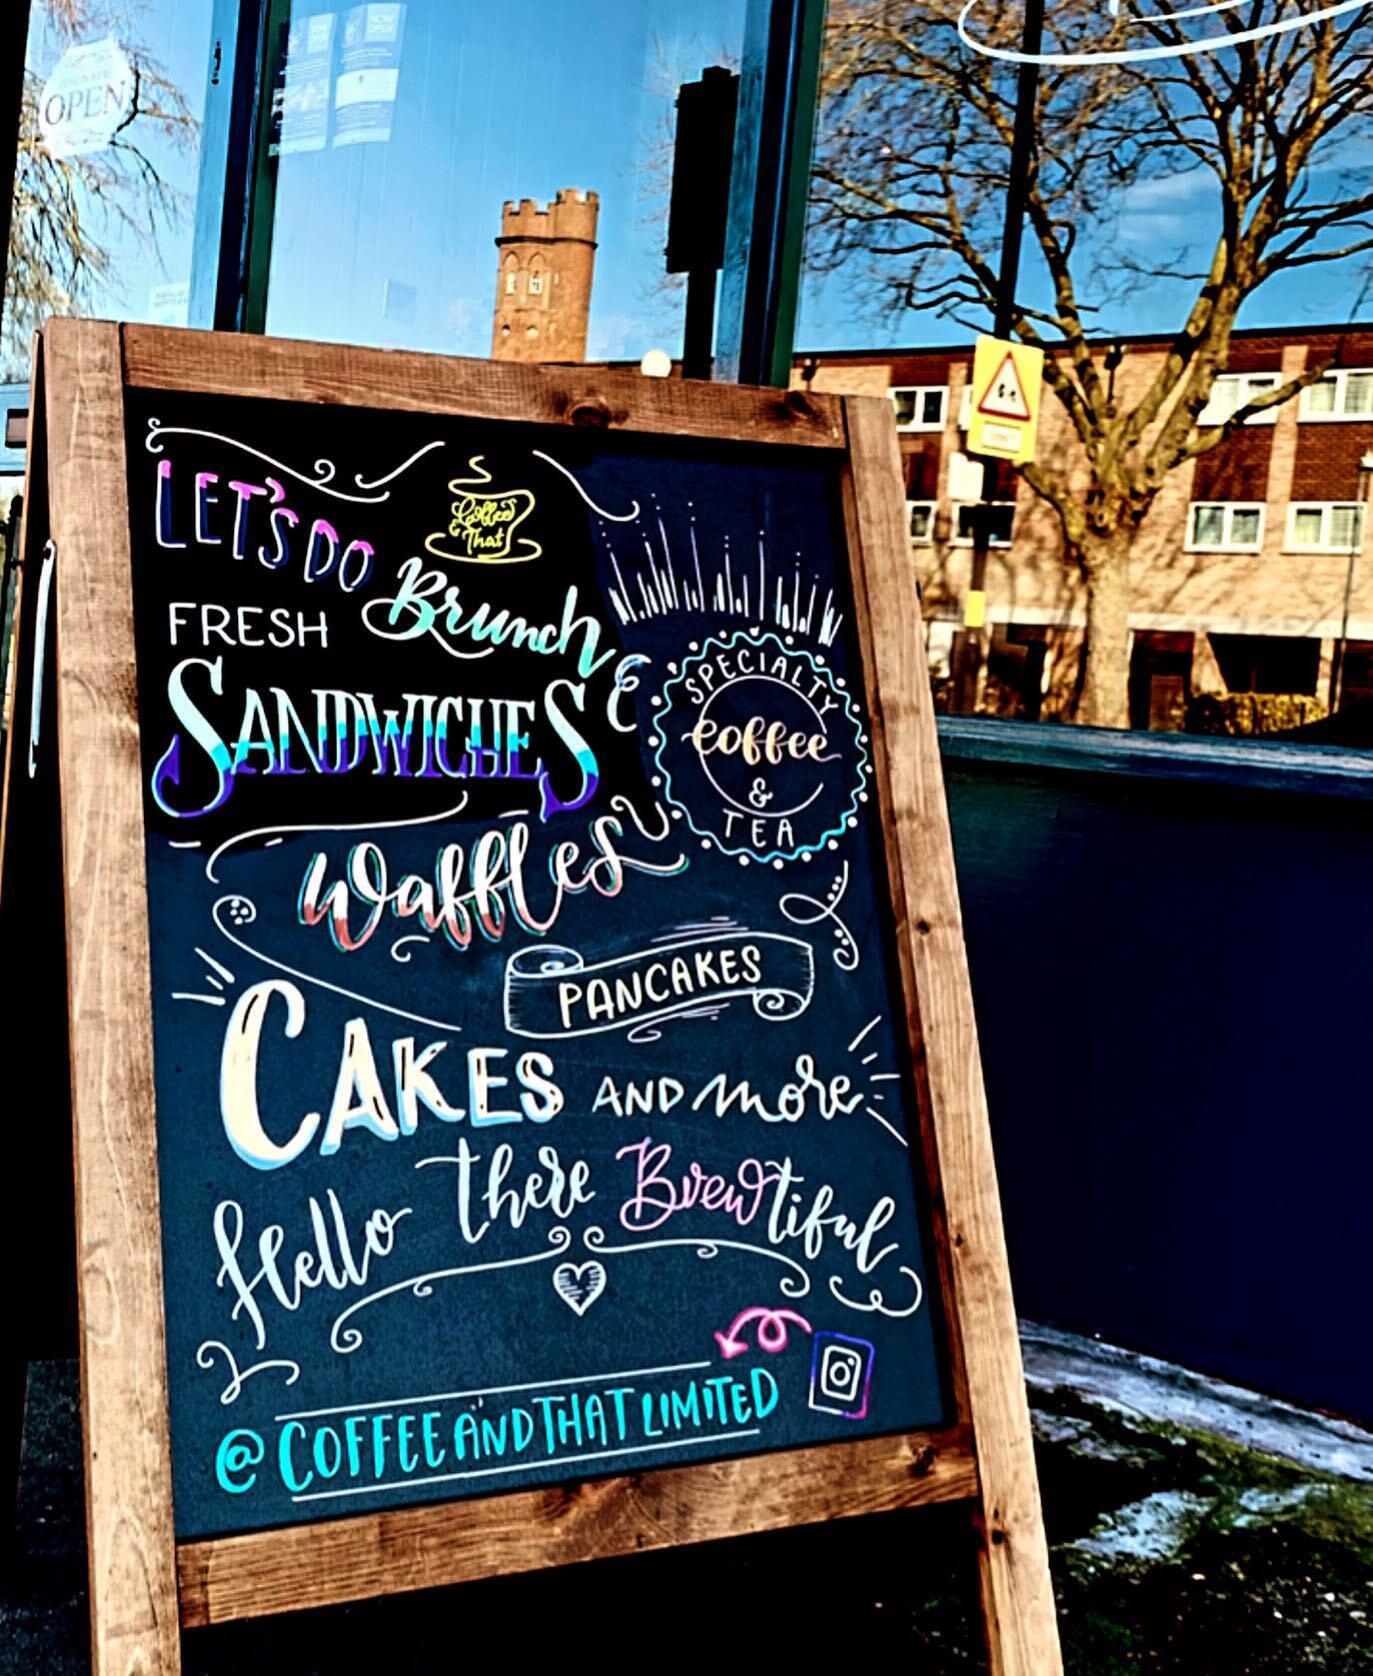 OPEN
NOW OPEN
NOW OPEN
LET'S DO Brunch
Coffee & That
FRESH
SANDWICHES &
SPECIALTY
coffee
&
TEA
Waffles
PANCAKES
CAKES AND more
Hello there Brewtiful
@COFFEEANDTHATLIMITED